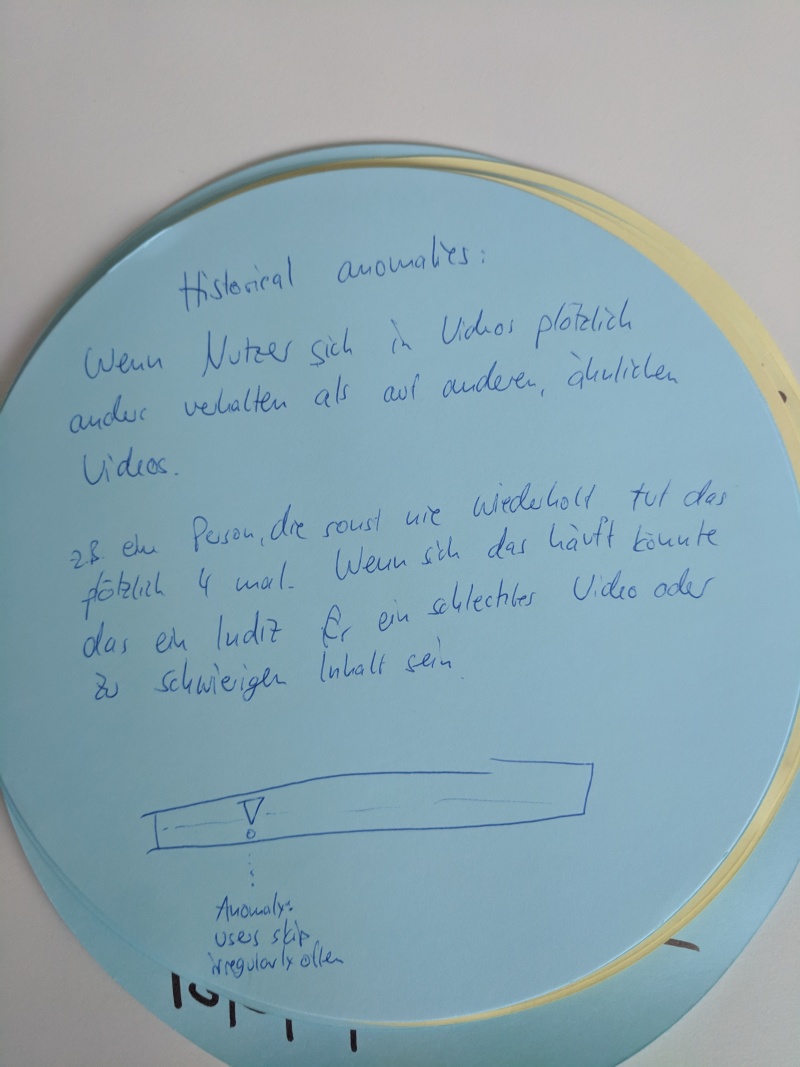 Historical anomalies:
Wenn Nutzer sich in Videos plötzlich
anders verhalten als auf anderen, ähnlichen
Videos.
z.B. ein Person, die sonst nie wiederholt tut das
plötzlich 4 mal. Wenn sich das häuft könnte
das ein Indiz für ein schlechtes Video oder
zu schwierigen Inhalt sein.
Anomaly:
users skip
irregularly often